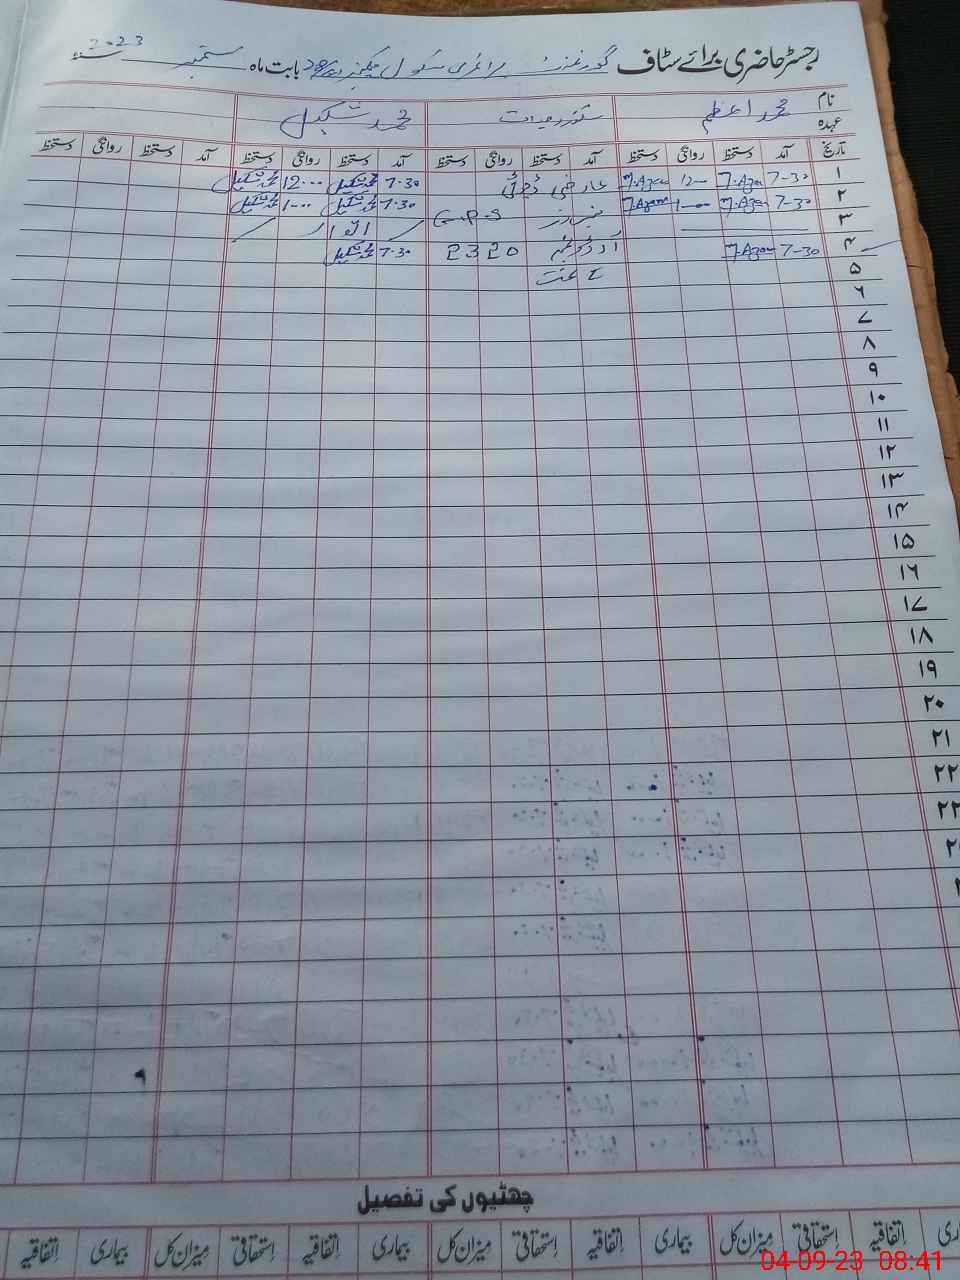 رجسٹر حاضری برائے سٹاف گورنمنٹ پرائمری سکول بابت ماہ ستمبر سنہ 2023
نام محمد اعظم محمد شکیل
عہدہ
تاریخ آمد دستخط روانگی دستخط آمد دستخط روانگی دستخط آمد دستخط روانگی دستخط آمد دستخط روانگی دستخط
۱ 7-30 M.Azam 12-00 M.Azam عارضی ڈیوٹی 7-30 محمد شکیل 12-00 محمد شکیل
۲ 7-30 M.Azam 1-00 M.Azam G.P.S 7-30 محمد شکیل 1-00 محمد شکیل
۳ اتوار
۴ 7-30 M.Azam آرڈر نمبر 2320 7-30 محمد شکیل
۵ کے تحت
۶
۷
۸
۹
۱۰
۱۱
۱۲
۱۳
۱۴
۱۵
۱۶
۱۷
۱۸
۱۹
۲۰
۲۱
۲۲
۲۳
چھٹیوں کی تفصیل
اِتفاقیہ اِستحقاقی میزان کل بیماری اِتفاقیہ اِستحقاقی میزان کل بیماری اِتفاقیہ اِستحقاقی میزان کل بیماری اِتفاقیہ
04-09-23 08:41